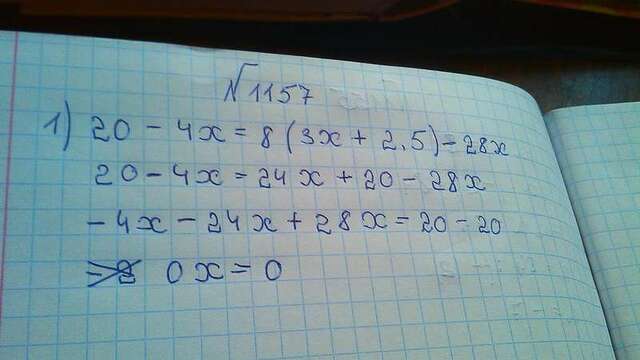 №1157
1) 20 - 4x = 8 (3x + 2,5) - 28x
20 - 4x = 24x + 20 - 28x
-4x - 24x + 28x = 20 - 20
0x = 0